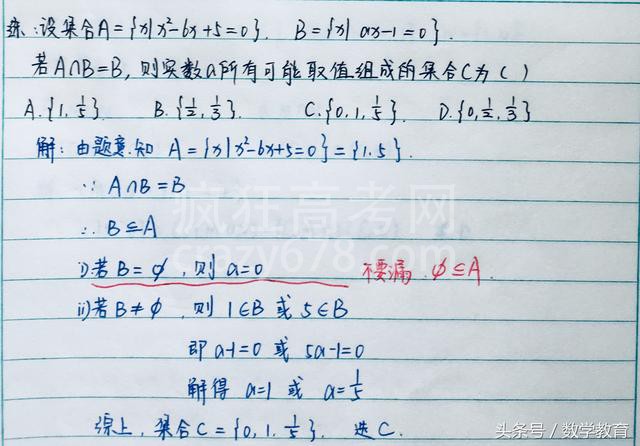 练:设集合A={x|x²-6x+5=0}, B={x|ax-1=0}.
若A∩B=B,则实数a所有可能取值组成的集合C为( )
A.{1,1/5} B.{1/2,1/3}. C.{0,1,1/5}. D.{0,1/2,1/3}
解:由题意知 A={x|x²-6x+5=0}={1.5}.
∵ A∩B=B
∴ B⊆A
i)若B=∅,则 a=0 不要漏.∅⊆A.
ii)若B≠∅,则 1∈B 或 5∈B
即 a-1=0 或 5a-1=0
解得 a=1 或 a=1/5
综上,集合C={0,1.1/5}. 选C.
疯狂高考网
头条号/数学教育